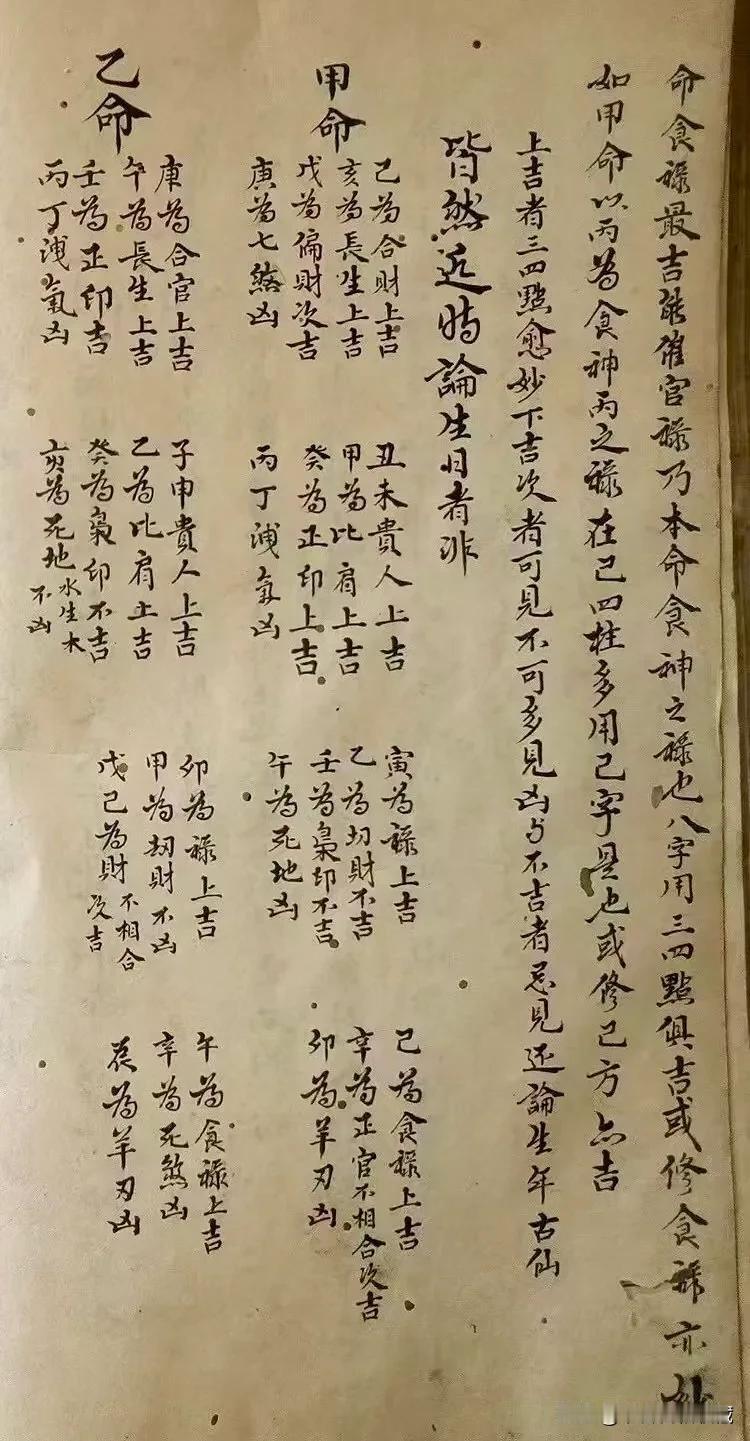 命食祿最吉能催官祿乃本命食神之祿也八字用三四點俱吉或修食祿亦妙
如甲命以丙為食神丙之祿在巳四柱多用巳字是也或修巳方亦吉
上吉者三四點愈妙下吉次者可見不可多見凶与不吉者忌見还論生年古仙
皆然近時論生日者非
甲命
己為合財上吉
亥為長生上吉
戊為偏財次吉
庚為七煞凶
丑未貴人上吉
甲為比肩上吉
癸為正印上吉
丙丁洩氣凶
寅為祿上吉
乙為刧財不吉
壬為梟印不吉
午為死地凶
巳為食祿上吉
辛為正官不相合次吉
卯為羊刃凶
乙命
庚為合官上吉
午為長生上吉
壬為正印吉
丙丁洩氣凶
子申貴人上吉
乙為比肩上吉
癸為梟印不吉
亥為死地水生木不凶
卯為祿上吉
甲為刧財不凶
戊己為財不相合次吉
午為食祿上吉
辛為死煞凶
辰為羊刃凶